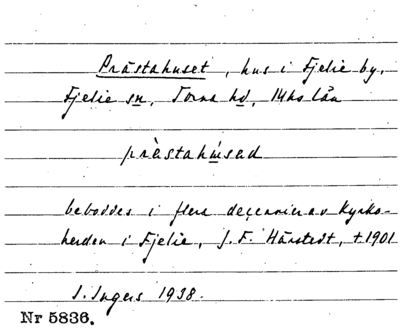 Prästahuset, hus i Fjelie by,
Fjelie sn, Torna hd, Mhs län
prästahúsad
beboddes i flera decennier av kyrko-
herden i Fjelie, J. F. Hårstedt, † 1901
I. Ingers 1938.
Nr 5836.